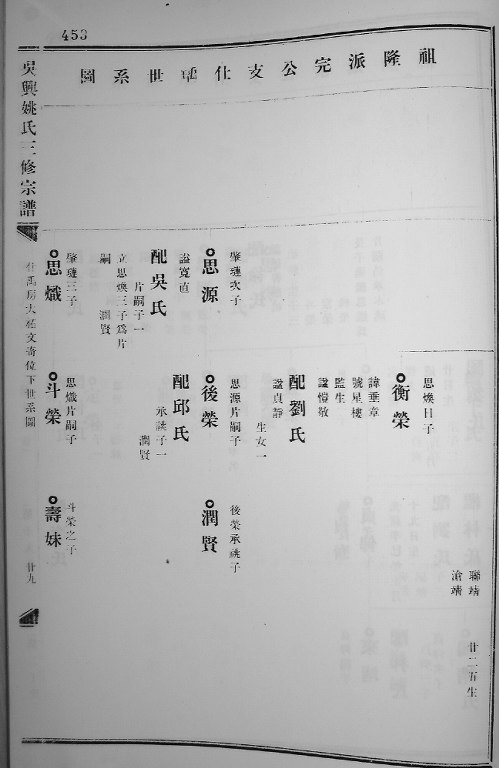 453
祖隆派完公支仕㕅世系圖
衡榮
思煥日子
諱垂章
號星樓
監生
謚愷敬
配劉氏
謚貞靜
生女一
聯靖
滄靖
廿二五生
思源
肇璉次子
謚寬直
配吳氏
片嗣子一
潤賢
立思煥三子爲片
嗣
後榮
思源片嗣子
配邱氏
承祧子一
潤賢
潤賢
後榮承祧子
思熾
肇璉三子
斗榮
思熾片嗣子
壽妹
斗榮之子
吳興姚氏三修宗譜
位下世系圖
廿九